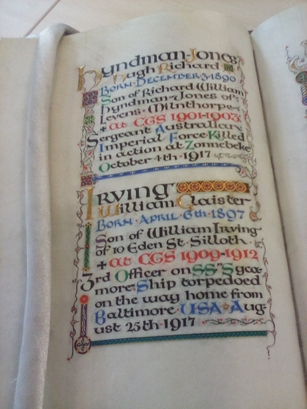 Hyndman-Jones
Hugh Richard
Born · December · 3 · 1890
Son of Richard William
Hyndman-Jones of
Levens · Milnthorpe ·
+ at CGS 1901-1903
Sergeant Australian
Imperial Force Killed
in action at Zonnebeke
October 4th · 1917
Irving
William Glaister
Born · April · 6th · 1897
Son of William Irving
of 10 Eden St · Silloth ·
+ at CGS 1909-1912
3rd Officer on SS Syca
more Ship torpedoed
on the way home from
Baltimore USA Aug-
ust 25th · 1917